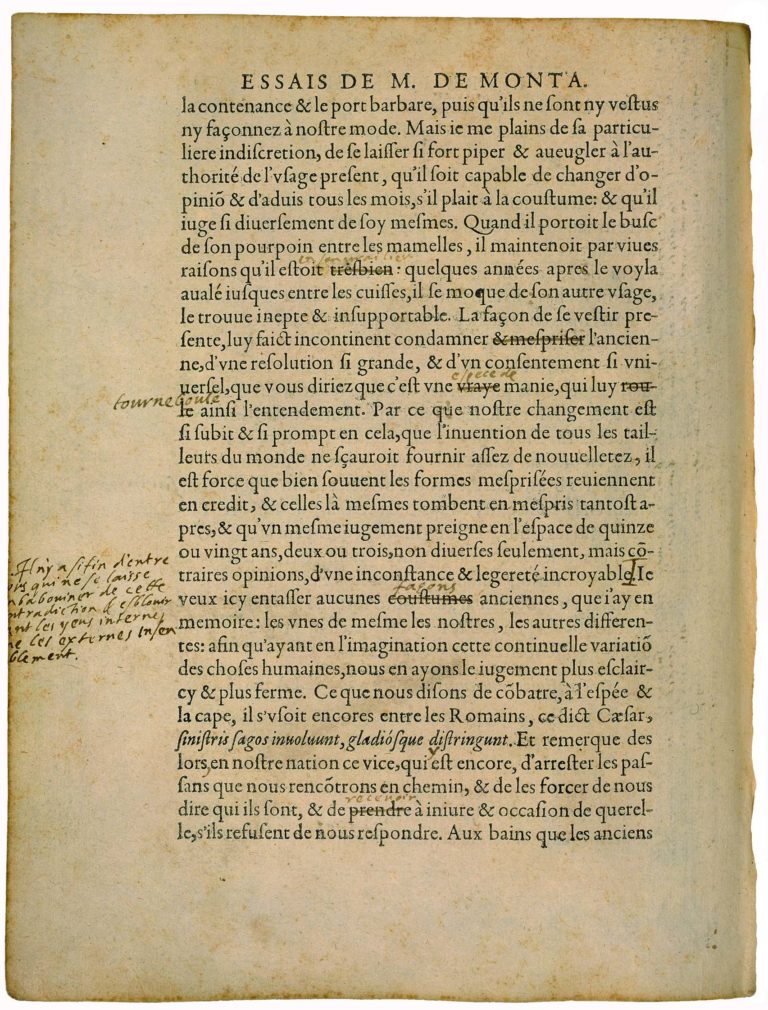 ESSAIS DE M. DE MONTA.
la contenance & le port barbare, puis qu'ils ne ſont ny veſtus
ny façonnez à noſtre mode. Mais ie me plains de ſa particu-
liere indiſcretion, de ſe laiſſer ſi fort piper & aueugler à l'au-
thorité de l'vſage preſent, qu'il ſoit capable de changer d'o-
piniõ & d'aduis tous les mois, s'il plait à la couſtume: & qu'il
iuge ſi diuerſement de ſoy meſmes. Quand il portoit le buſc
de ſon pourpoin entre les mamelles, il maintenoit par viues
raiſons qu'il eſtoit treſbien: quelques années apres le voyla
aualé iuſques entre les cuiſſes, il ſe moque de ſon autre vſage,
le trouue inepte & inſupportable. La façon de ſe veſtir pre-
ſente, luy faict incontinent condamner & meſpriſer l'ancien-
ne, d'vne reſolution ſi grande, & d'vn conſentement ſi vni-
espece de
uerſel, que vous diriez que c'eſt vne vraye manie, qui luy rou-
tourneboule
le ainſi l'entendement. Par ce que noſtre changement eſt
ſi ſubit & ſi prompt en cela, que l'inuention de tous les tail-
leurs du monde ne ſçauroit fournir aſſez de nouuelletez, il
eſt force que bien ſouuent les formes meſpriſées reuiennent
en credit, & celles là meſmes tombent en meſpris tantoſt a-
pres, & qu'vn meſme iugement preigne en l'eſpace de quinze
ou vingt ans, deux ou trois, non diuerſes ſeulement, mais cõ-
traires opinions, d'vne inconſtance & legereté incroyable. Ie
Il n'y a si fin d'entre
qui ne se laisse
de cette
esblouir
les yeus internes
les externes insen
blement.
façons
veux icy entaſſer aucunes couſtumes anciennes, que i'ay en
memoire: les vnes de meſme les noſtres, les autres differen-
tes: afin qu'ayant en l'imagination cette continuelle variatiõ
des choſes humaines, nous en ayons le iugement plus eſclair-
cy & plus ferme. Ce que nous diſons de cõbatre, à l'eſpée &
la cape, il s'vſoit encores entre les Romains, ce dict Cæſar,
ſiniſtris ſagos inuoluunt, gladióſque diſtringunt. Et remarque des
lors, en noſtre nation ce vice, qui eſt encore, d'arreſter les paſ-
ſans que nous rencõtrons en chemin, & de les forcer de nous
recevoir
dire qui ils ſont, & de prendre à iniure & occaſion de querel-
le, s'ils refuſent de nous reſpondre. Aux bains que les anciens